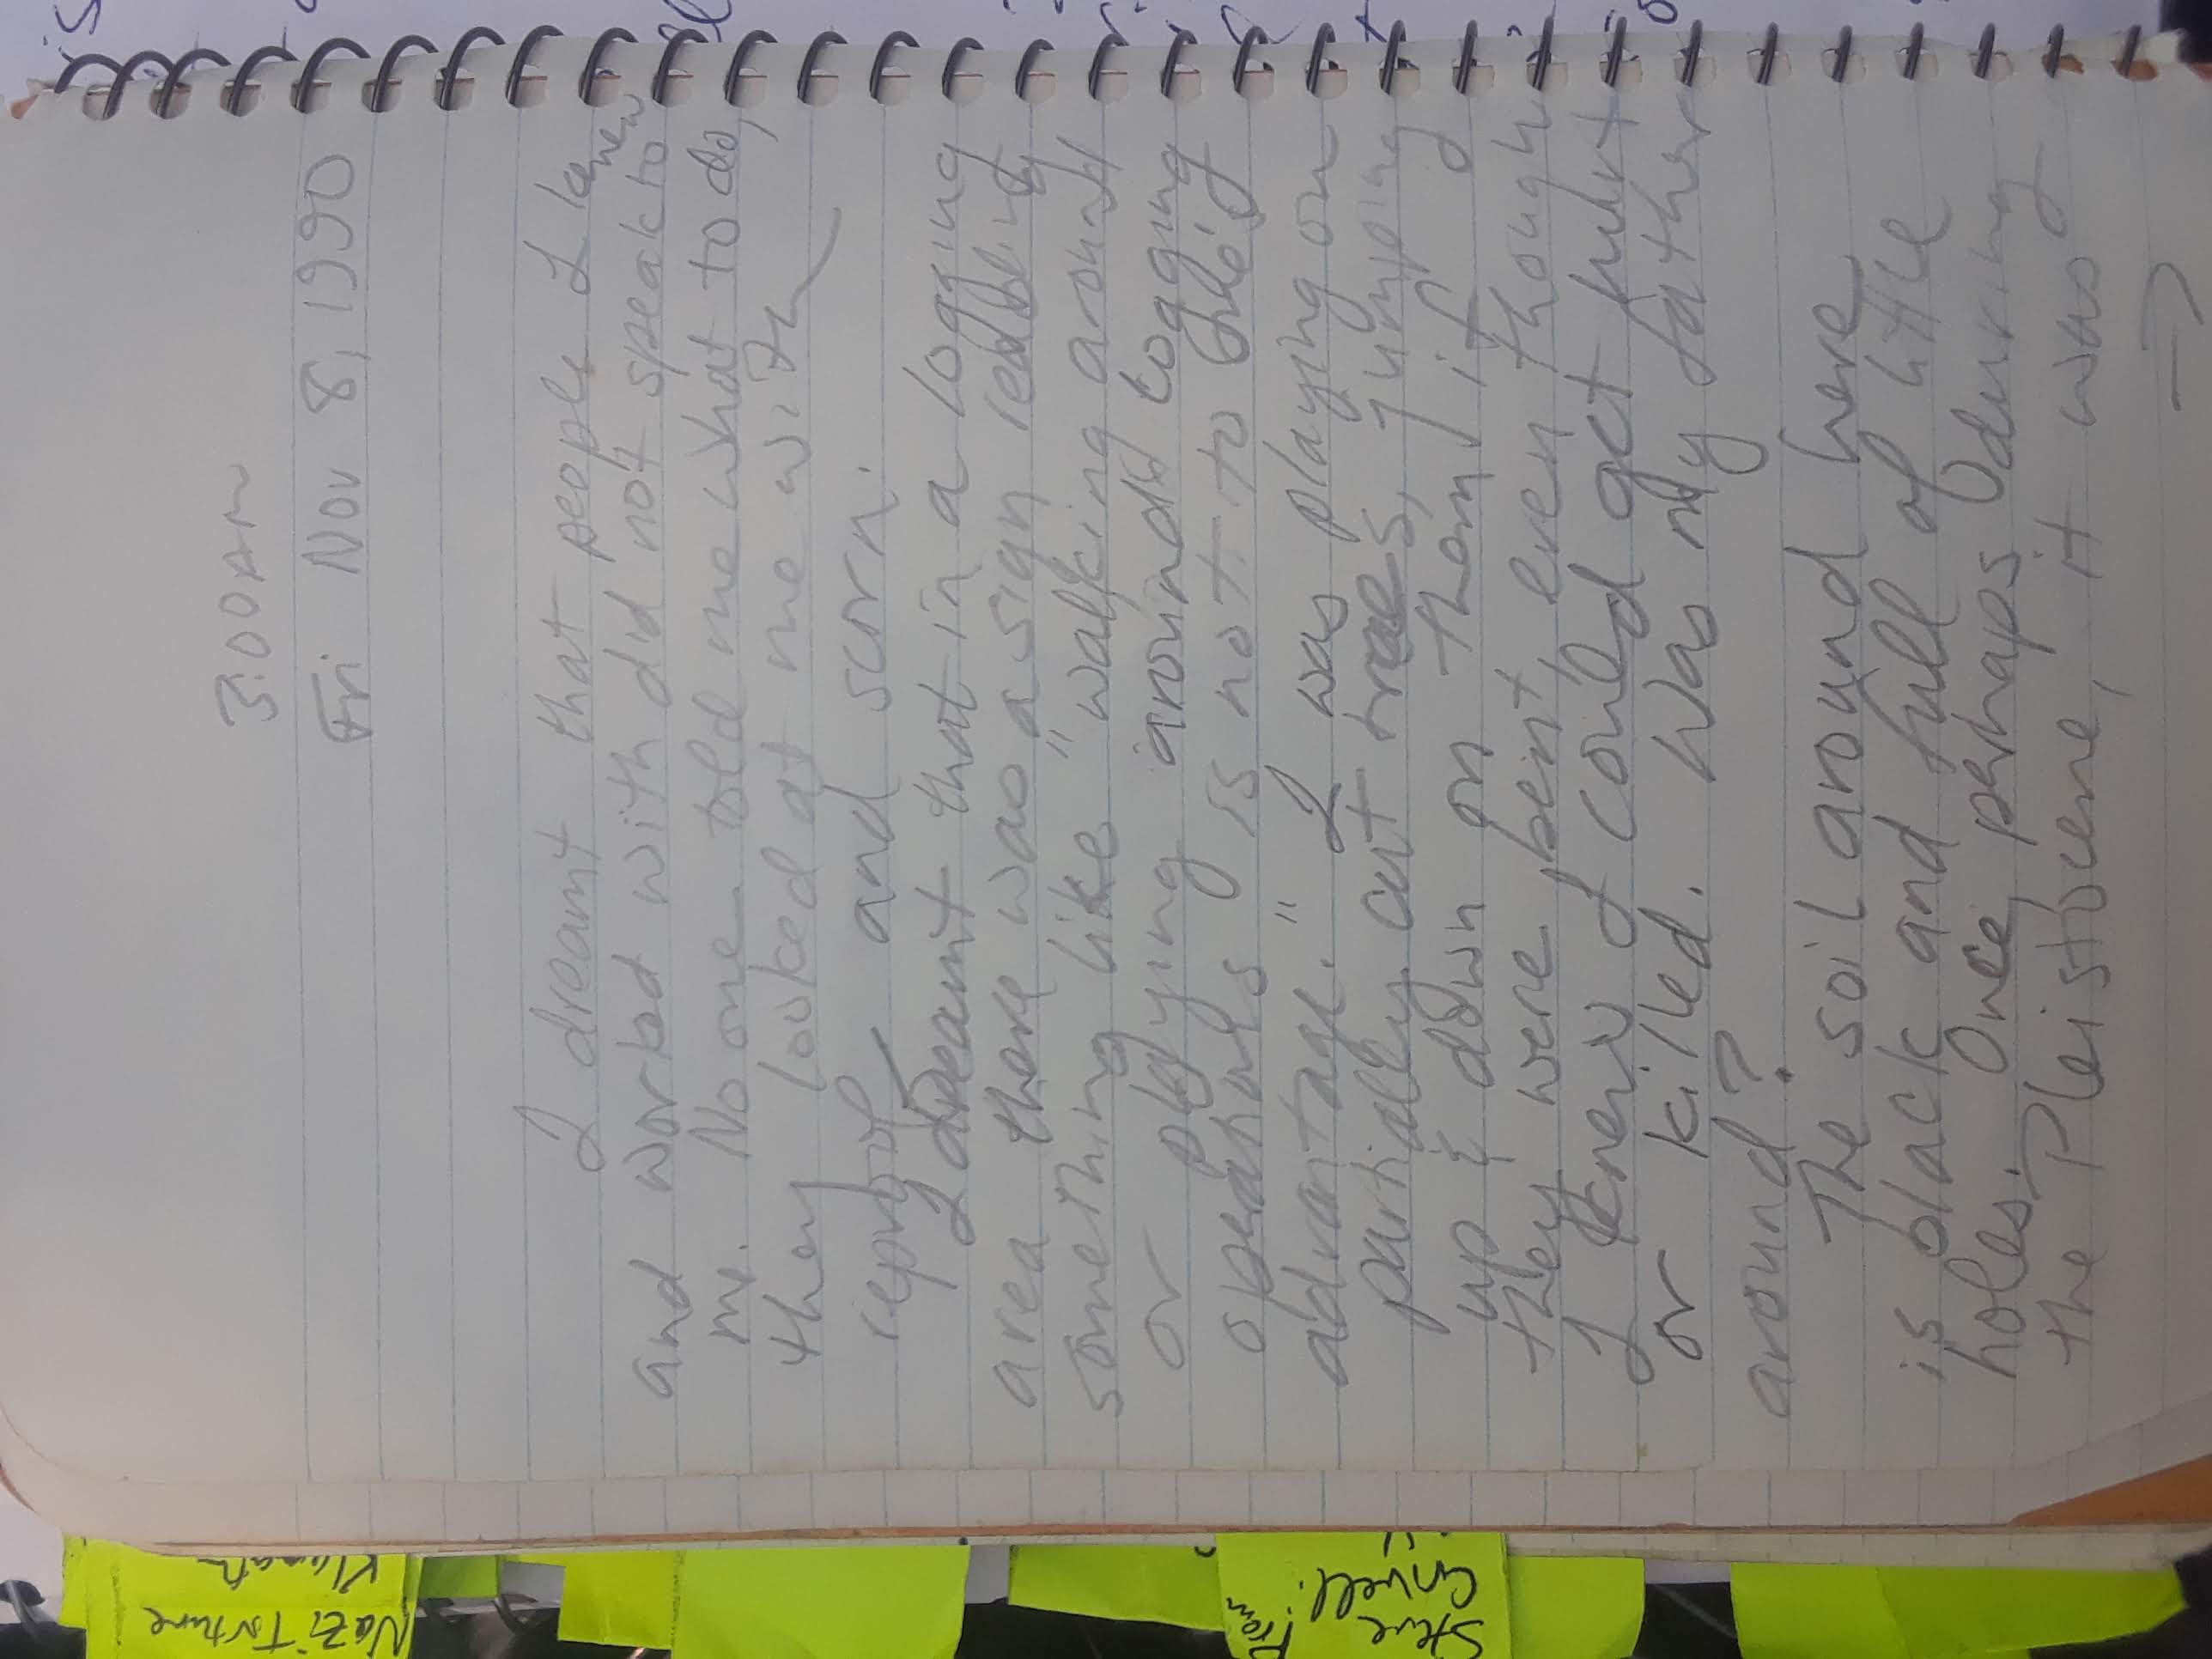 3:00AM
Fri Nov 8, 1990
I dreamt that people I knew
and worked with did not speak to
me. No one told me what to do,
they looked at me with
reproof and scorn.
I dreamt that in a logging
area there was a sign reading
something like "walking around
or playing around logging
operations is not to one's
advantage." I was playing on
partially cut trees, jumping
up & down on them if
they were bent, even though
I knew I could get hurt
or killed. Was my father
around?
The soil around here
is black and full of little
holes. Once, perhaps during
the Pleistocene, it was
→
Nazi Torture
Klamath
Steve
From